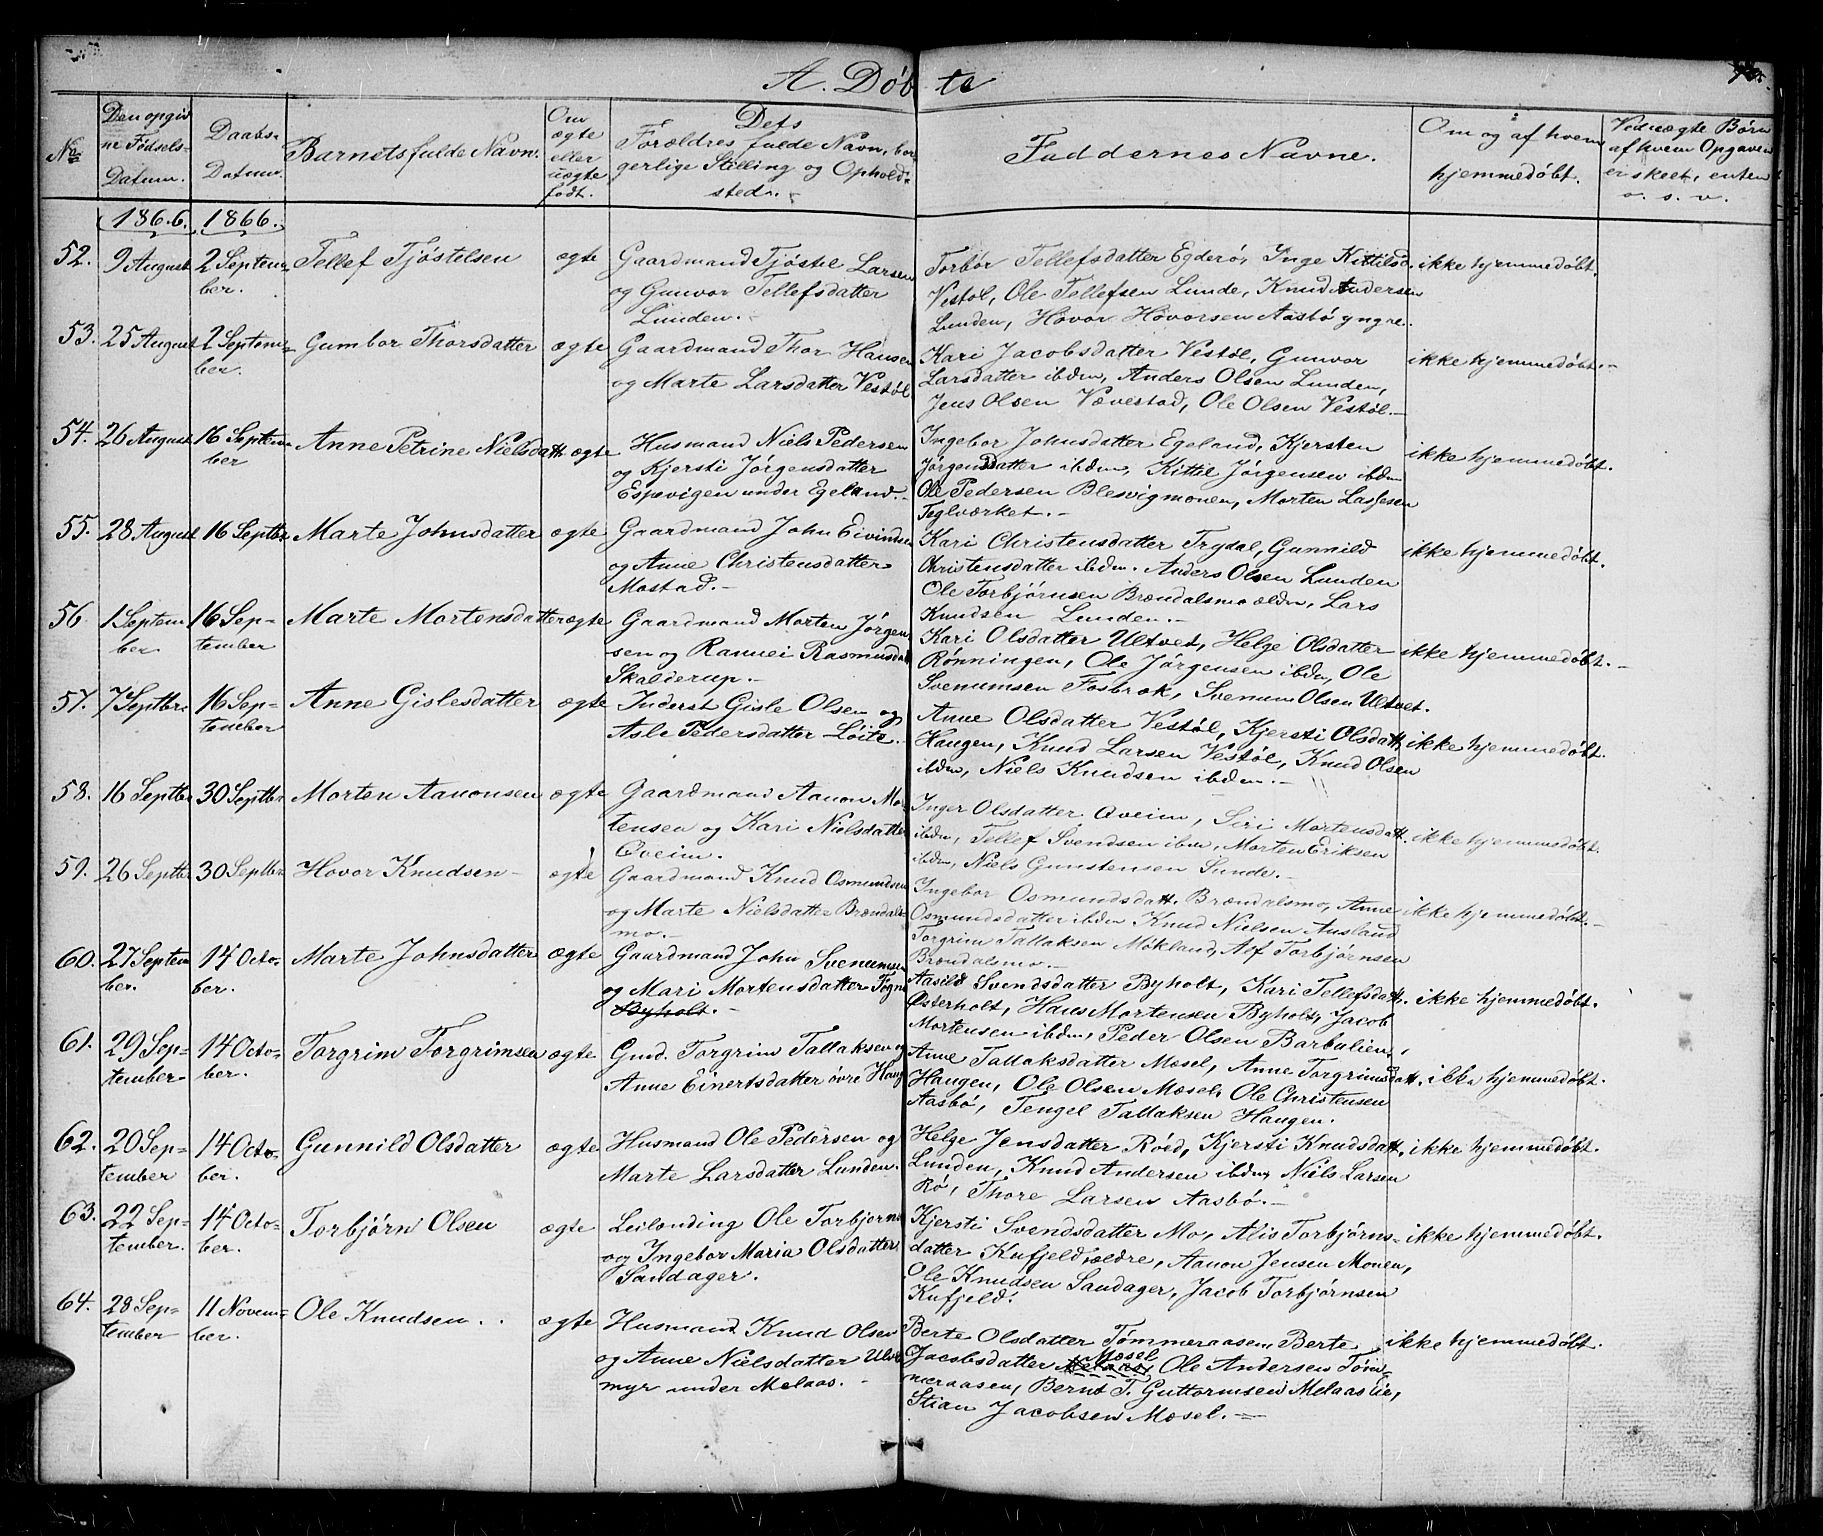 A. Døbte
No
Den opgivne Fødsels-Datum.
Daabs-Datum.
Barnets fulde Navn.
Om ægte eller uægte født.
Dets Forældres fulde Navn, borgerlige Stilling og Opholdssted.-
Faddernes Navne.
Om og af hvem hjemmedøbt.
Ved uægte Børn af hvem Opgaven er skeet, enten o. s. v.
1866. 1866.
52. 9 August 2 September. Tellef Tjøstelsen ægte Gaardmand Tjøstel Larsen og Gunvor Tellefsdatter Lunden.- Torbør Tellefsdatter Egderø, Inge Kittilsd. Vestøl, Ole Tellefsen Lunde, Knud Andersen Lunden, Hovor Hovorsen Aasbø yngre. ikke hjemmedøbt.
53. 25 August 2 September. Gumbor Thorsdatter ægte Gaardmand Thor Hansen og Marte Larsdatter Vestøl Kari Jacobsdatter Vestøl, Gunvor Larsdatter ibdm, Anders Olsen Lunden, Jens Olsen Vævestad, Ole Olsen Vestøl.- ikke hjemmedøbt.-
54. 26 August 16 September Anne Petrine Nielsdatt. ægte Husmand Niels Pedersen og Kjersti Jørgensdatter Espevigen under Egeland.- Ingebor Johnsdatter Egeland, Kjersten Jørgensdatter ibdm, Kittil Jørgensen ibdm Ole Pedersen Blesvigmonen, Morten Lassesen Teglværket.- ikke hjemmedøbt.
55. 28 August 16 Septbr. Marte Johnsdatter ægte Gaardmand John Eivindsen og Anne Christensdatter Mostad.- Kari Christensdatter Trydal, Gunnild Christensdatter ibdm. Anders Olsen Lunden Ole Torbjørnsen Brændalsmo ældr, Lars Knudsen Lunden.- ikke hjemmedøbt.
56. 1 September 16 September Marte Mortensdatter ægte Gaardmand Morten Jørgensen og Rannei Rasmusdatt Skalderup.- Kari Olsdatter Ultvet, Helge Olsdatter Rønningen, Ole Jørgensen ibdm, Ole Svenumsen Fosbrok, Svenum Olsen Ultvet. ikke hjemmedøbt.-
57. 7 Septbr. 16 September Anne Gislesdatter ægte Inderst Gisle Olsen og Asle Pedersdatter Løite. Anne Olsdatter Vestøl, Kjersti Olsdatt. Haugen, Knud Larsen Vestøl, Knud Olsen ibdm, Niels Knudsen ibdm.- ikke hjemmedøbt.
58. 16 Septbr 30 Septbr Morten Aanonsen ægte Gaardmand Aanon Mortensen og Kari Nielsdatter Oveim. Inger Olsdatter Oveim, Siri Mortensdatt. ibdm, Tellef Svendsen ibdm, Morten Eriksen ibdm, Niels Gunstensen Sunde.- ikke hjemmedøbt.
59. 26 Septbr 30 Septbr. Hovor Knudsen- ægte Gaardmand Knud Osmundsen og Marte Nielsdatter Brændalsmo.- Ingebor Osmundsdatt. Brændalsmo, Anne Osmundsdatter ibdm Knud Nielsen Ausland Torgrim Tallaksen Mökland, Asf Torbjørnsen Brændalsmo.- ikke hjemmedøbt.-
60. 27 September. 14 October. Marte Johnsdatter ægte Gaardmand John Svenumsen og Mari Mortensdatter Togne Byholt.- Aasild Svendsdatter Byholt, Kari Tellefsdatt. Østerholt, Hans Mortensen Byholt, Jacob Mortensen ibdm, Peder Olsen Barbulien. ikke hjemmedøbt.
61. 29 September 14 October. Torgrim Torgrimsen ægte Gmd. Torgrim Tallaksen og Anne Einertsdatter øvre Haug Anne Tallaksdatter Mosel, Anne Torgrimsdatt. Haugen, Ole Olsen Mæsel, Ole Christensen Aasbø, Tengel Tallaksen Haugen. ikke hjemmedøbt.
62. 20 September 14 October. Gunnild Olsdatter ægte Husmand Ole Pedersen og Marte Larsdatter Lunden. Helge Jensdatter Röed, Kjersti Knudsdatt. Lunden, Knud Andersen ibdm, Niels Larsen Rö, Thore Larsen Aasbø.- ikke hjemmedøbt.
63. 22 September. 14 October. Torbjørn Olsen ægte Leilænding Ole Torbjørns og Ingebor Maria Olsdatter Sandager. Kjersti Svendsdatter Mo, Alis Torbjørnsdatter Kufjeld ældre, Aanon Jensen Monen, Ole Knudsen Sandager, Jacob Torbjørnsen Kufjeld. ikke hjemmedøbt.
64. 28 September 11 November. Ole Knudsen. . ægte Husmand Knud Olsen og Anne Nielsdatter Ulvemyr under Melaas.- Berte Olsdatter Tømmeraasen, Berte Jacobsdatter Mæsel, Ole Andersen Tømmeraasen, Bernt T. Guttormsen Melaaslie, Stian Jacobsen Mæsel.- ikke hjemmedøbt.